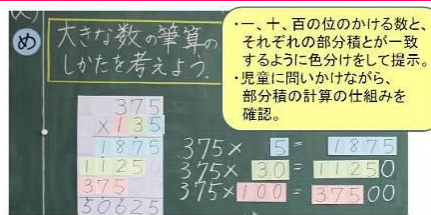 め
大きな数の筆算の
しかたを考えよう。
・一、十、百の位のかける数と、
それぞれの部分積とが一致
するように色分けをして提示。
・児童に問いかけながら、
部分積の計算の仕組みを
確認。
375
×135
1875
1125
375
50625
375× 5 = 1875
375× 30 = 11250
375×100 = 37500